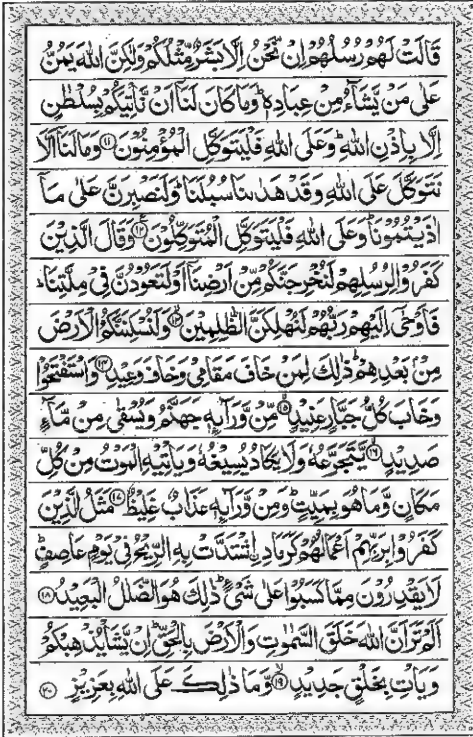 قَالَتْ لَهُمْ رُسُلُهُمْ اِنْ نَّحْنُ اِلَّا بَشَرٌ مِّثْلُكُمْ وَلٰكِنَّ اللّٰهَ يَمُنُّ
عَلٰى مَنْ يَّشَآءُ مِنْ عِبَادِهٖ ؕ وَمَا كَانَ لَنَاۤ اَنْ نَّاْتِيَكُمْ بِسُلْطٰنٍ
اِلَّا بِاِذْنِ اللّٰهِ ؕ وَعَلَى اللّٰهِ فَلْيَتَوَكَّلِ الْمُؤْمِنُوْنَ ﴿۱۱﴾ وَمَا لَنَاۤ اَلَّا
نَتَوَكَّلَ عَلَى اللّٰهِ وَقَدْ هَدٰىنَا سُبُلَنَا ؕ وَلَنَصْبِرَنَّ عَلٰى مَاۤ
اٰذَيْتُمُوْنَا ؕ وَعَلَى اللّٰهِ فَلْيَتَوَكَّلِ الْمُتَوَكِّلُوْنَ ﴿۱۲﴾ وَقَالَ الَّذِيْنَ
كَفَرُوْا لِرُسُلِهِمْ لَنُخْرِجَنَّكُمْ مِّنْ اَرْضِنَاۤ اَوْ لَتَعُوْدُنَّ فِيْ مِلَّتِنَا ؕ
فَاَوْحٰۤى اِلَيْهِمْ رَبُّهُمْ لَنُهْلِكَنَّ الظّٰلِمِيْنَ ﴿۱۳﴾ وَلَنُسْكِنَنَّكُمُ الْاَرْضَ
مِنْۢ بَعْدِهِمْ ؕ ذٰلِكَ لِمَنْ خَافَ مَقَامِيْ وَخَافَ وَعِيْدِ ﴿۱۴﴾ وَاسْتَفْتَحُوْا
وَخَابَ كُلُّ جَبَّارٍ عَنِيْدٍ ﴿۱۵﴾ مِّنْ وَّرَآئِهٖ جَهَنَّمُ وَيُسْقٰى مِنْ مَّآءٍ
صَدِيْدٍ ﴿۱۶﴾ يَّتَجَرَّعُهٗ وَلَا يَكَادُ يُسِيْغُهٗ وَيَاْتِيْهِ الْمَوْتُ مِنْ كُلِّ
مَكَانٍ وَّمَا هُوَ بِمَيِّتٍ ؕ وَمِنْ وَّرَآئِهٖ عَذَابٌ غَلِيْظٌ ﴿۱۷﴾ مَثَلُ الَّذِيْنَ
كَفَرُوْا بِرَبِّهِمْ اَعْمَالُهُمْ كَرَمَادِ ۟اشْتَدَّتْ بِهِ الرِّيْحُ فِيْ يَوْمٍ عَاصِفٍ ؕ
لَا يَقْدِرُوْنَ مِمَّا كَسَبُوْا عَلٰى شَيْءٍ ؕ ذٰلِكَ هُوَ الضَّلٰلُ الْبَعِيْدُ ﴿۱۸﴾
اَلَمْ تَرَ اَنَّ اللّٰهَ خَلَقَ السَّمٰوٰتِ وَالْاَرْضَ بِالْحَقِّ ؕ اِنْ يَّشَاْ يُذْهِبْكُمْ
وَيَاْتِ بِخَلْقٍ جَدِيْدٍ ﴿۱۹﴾ وَّمَا ذٰلِكَ عَلَى اللّٰهِ بِعَزِيْزٍ ﴿۲۰﴾